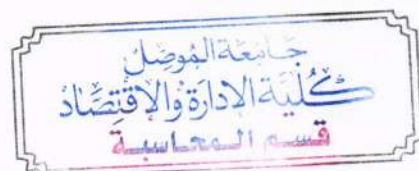 جَامِعَة المُوصِل
كُلِيَّة الإدَارَة وَالاِقتِصَاد
قسم المحاسبة